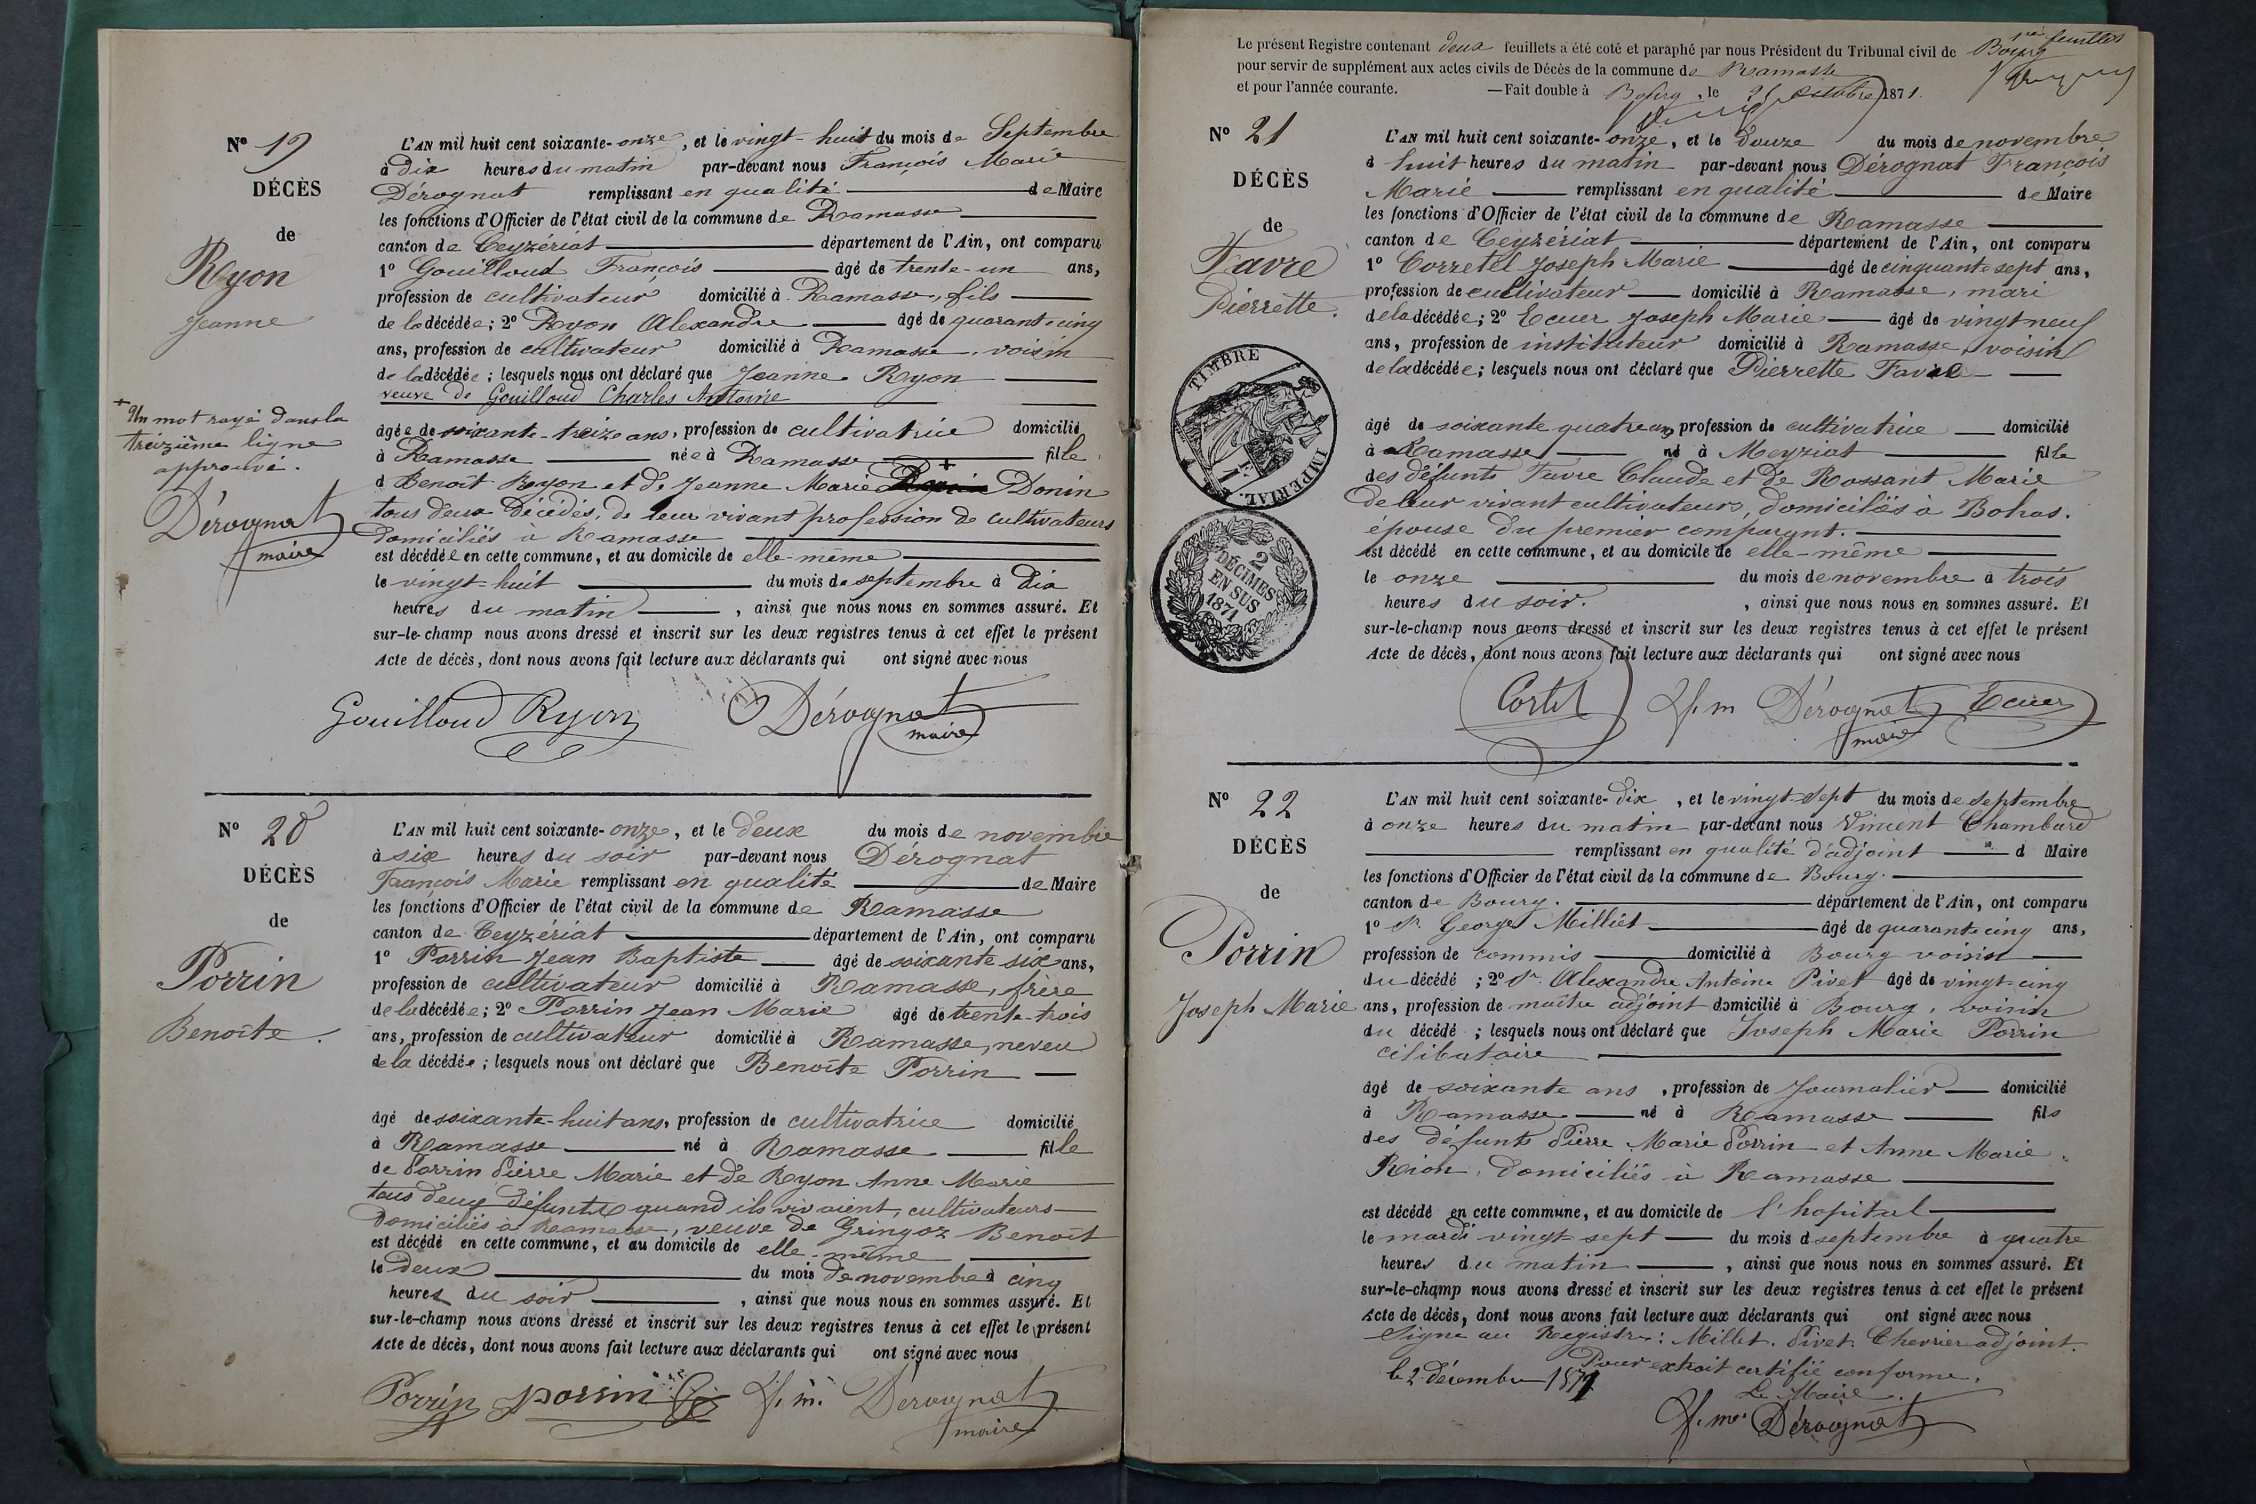 Nº 19
DÉCÈS
de
Ryon
Jeanne
Un mot rayé dans la
treizième ligne
approuvé.
Dérognat
maire
L'AN mil huit cent soixante-onze, et le vingt-huit du mois de Septembre
à dix heures du matin par-devant nous François Marie
Dérognat remplissant en qualité de Maire
les fonctions d'Officier de l'état civil de la commune de Ramasse
canton de Ceyzériat département de l'Ain, ont comparu
1º Gouilloud François âgé de trente-un ans,
profession de cultivateur domicilié à Ramasse, fils
de la décédée; 2º Ryon Alexandre âgé de quarante cinq
ans, profession de cultivateur domicilié à Ramasse, voisin
de la décédée; lesquels nous ont déclaré que Jeanne Ryon
veuve de Gouilloud Charles Antoine
âgée de soixante-treize ans, profession de cultivatrice domicilié
à Ramasse née à Ramasse fille
d Benoît Ryon et de Jeanne Marie Donin
tous deux décédés, de leur vivant profession de cultivateurs
domiciliés à Ramasse
est décédée en cette commune, et au domicile de elle-même
le vingt-huit du mois de septembre à dix
heures du matin, ainsi que nous nous en sommes assuré. Et
sur-le-champ nous avons dressé et inscrit sur les deux registres tenus à cet effet le présent
Acte de décès, dont nous avons fait lecture aux déclarants qui ont signé avec nous
Gouilloud Ryon Dérognat
maire
Nº 20
DÉCÈS
de
Porrin
Benoîte.
L'AN mil huit cent soixante-onze, et le deux du mois de novembre
à six heures du soir par-devant nous Dérognat
François Marie remplissant en qualité de Maire
les fonctions d'Officier de l'état civil de la commune de Ramasse
canton de Ceyzériat département de l'Ain, ont comparu
1º Porrin Jean Baptiste âgé de soixante six ans,
profession de cultivateur domicilié à Ramasse, frère
de la décédée; 2º Porrin Jean Marie âgé de trente-trois
ans, profession de cultivateur domicilié à Ramasse, neveu
de la décédée; lesquels nous ont déclaré que Benoîte Porrin
âgé de soixante-huit ans, profession de cultivatrice domicilié
à Ramasse né à Ramasse fille
de Porrin Pierre Marie et de Ryon Anne Marie
tous deux défunts quand ils vivaient, cultivateurs
domiciliés à Ramasse, veuve de Gringoz Benoît
est décédé en cette commune, et au domicile de elle-même
le deux du mois de novembre à cinq
heures du soir, ainsi que nous nous en sommes assuré. Et
sur-le-champ nous avons dressé et inscrit sur les deux registres tenus à cet effet le présent
Acte de décès, dont nous avons fait lecture aux déclarants qui ont signé avec nous
Porrin porrin f. m. Dérognat
maire
Le présent Registre contenant deux feuillets a été coté et paraphé par nous Président du Tribunal civil de Bourg
pour servir de supplément aux actes civils de Décès de la commune de Ramasse
et pour l'année courante. —Fait double à Bourg, le octobre 1871.
Nº 21
DÉCÈS
de
Favre
Pierrette.
TIMBRE IMPÉRIAL
2
DÉCIMES
EN SUS
1871
L'AN mil huit cent soixante-onze, et le douze du mois de novembre
à huit heures du matin par-devant nous Dérognat François
Marie remplissant en qualité de Maire
les fonctions d'Officier de l'état civil de la commune de Ramasse
canton de Ceyzériat département de l'Ain, ont comparu
1º Corretel Joseph Marie âgé de cinquante sept ans,
profession de cultivateur domicilié à Ramasse, mari
de la décédée; 2º Ecuer Joseph Marie âgé de vingt neuf
ans, profession de instituteur domicilié à Ramasse, voisin
de la décédée; lesquels nous ont déclaré que Pierrette Favre
âgé de soixante quatre ans, profession de cultivatrice domicilié
à Ramasse né à Meyziat fille
des défunts Favre Claude et de Rossant Marie
de leur vivant cultivateurs, domiciliés à Bohas.
épouse du premier comparant.
est décédé en cette commune, et au domicile de elle-même
le onze du mois de novembre à trois
heures du soir., ainsi que nous nous en sommes assuré. Et
sur-le-champ nous avons dressé et inscrit sur les deux registres tenus à cet effet le présent
Acte de décès, dont nous avons fait lecture aux déclarants qui ont signé avec nous
Cortel f. m Dérognat Ecuer
maire
Nº 22
DÉCÈS
de
Porrin
Joseph Marie
L'AN mil huit cent soixante-dix, et le vingt-sept du mois de septembre
à onze heures du matin par-devant nous Vincent Chambard
remplissant en qualité d'adjoint d Maire
les fonctions d'Officier de l'état civil de la commune de Bourg.
canton de Bourg. département de l'Ain, ont comparu
1º Sr. George Milliet âgé de quarante cinq ans,
profession de commis domicilié à Bourg voisin
du décédé; 2º Sr. Alexandre Antoine Pivet âgé de vingt-cinq
ans, profession de maître adjoint domicilié à Bourg, voisin
du décédé; lesquels nous ont déclaré que Joseph Marie Porrin
célibataire
âgé de soixante ans, profession de Journalier domicilié
à Ramasse né à Ramasse fils
des défunts Pierre Marie Porrin et Anne Marie
Rion, domiciliés à Ramasse
est décédé en cette commune, et au domicile de l'hopital
le mardi vingt sept du mois d septembre à quatre
heures du matin, ainsi que nous nous en sommes assuré. Et
sur-le-champ nous avons dressé et inscrit sur les deux registres tenus à cet effet le présent
Acte de décès, dont nous avons fait lecture aux déclarants qui ont signé avec nous
Signé au Registre: Millet. Pivet. Chevrier adjoint.
Pour extrait certifié conforme,
le 2 décembre 1871
Le Maire.
f. m. Dérognat